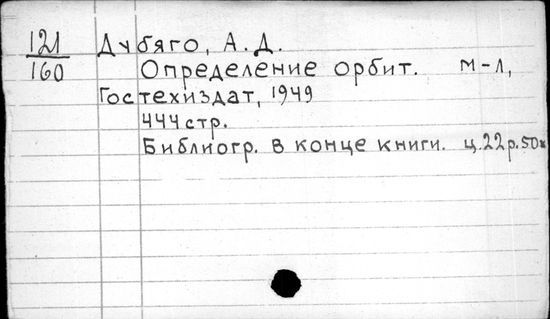 121 Дубяго, А.Д.
160 Определение орбит. М-Л,
Гостехиздат, 1949
444 стр.
Библиогр. в конце книги. ц.22р.50к